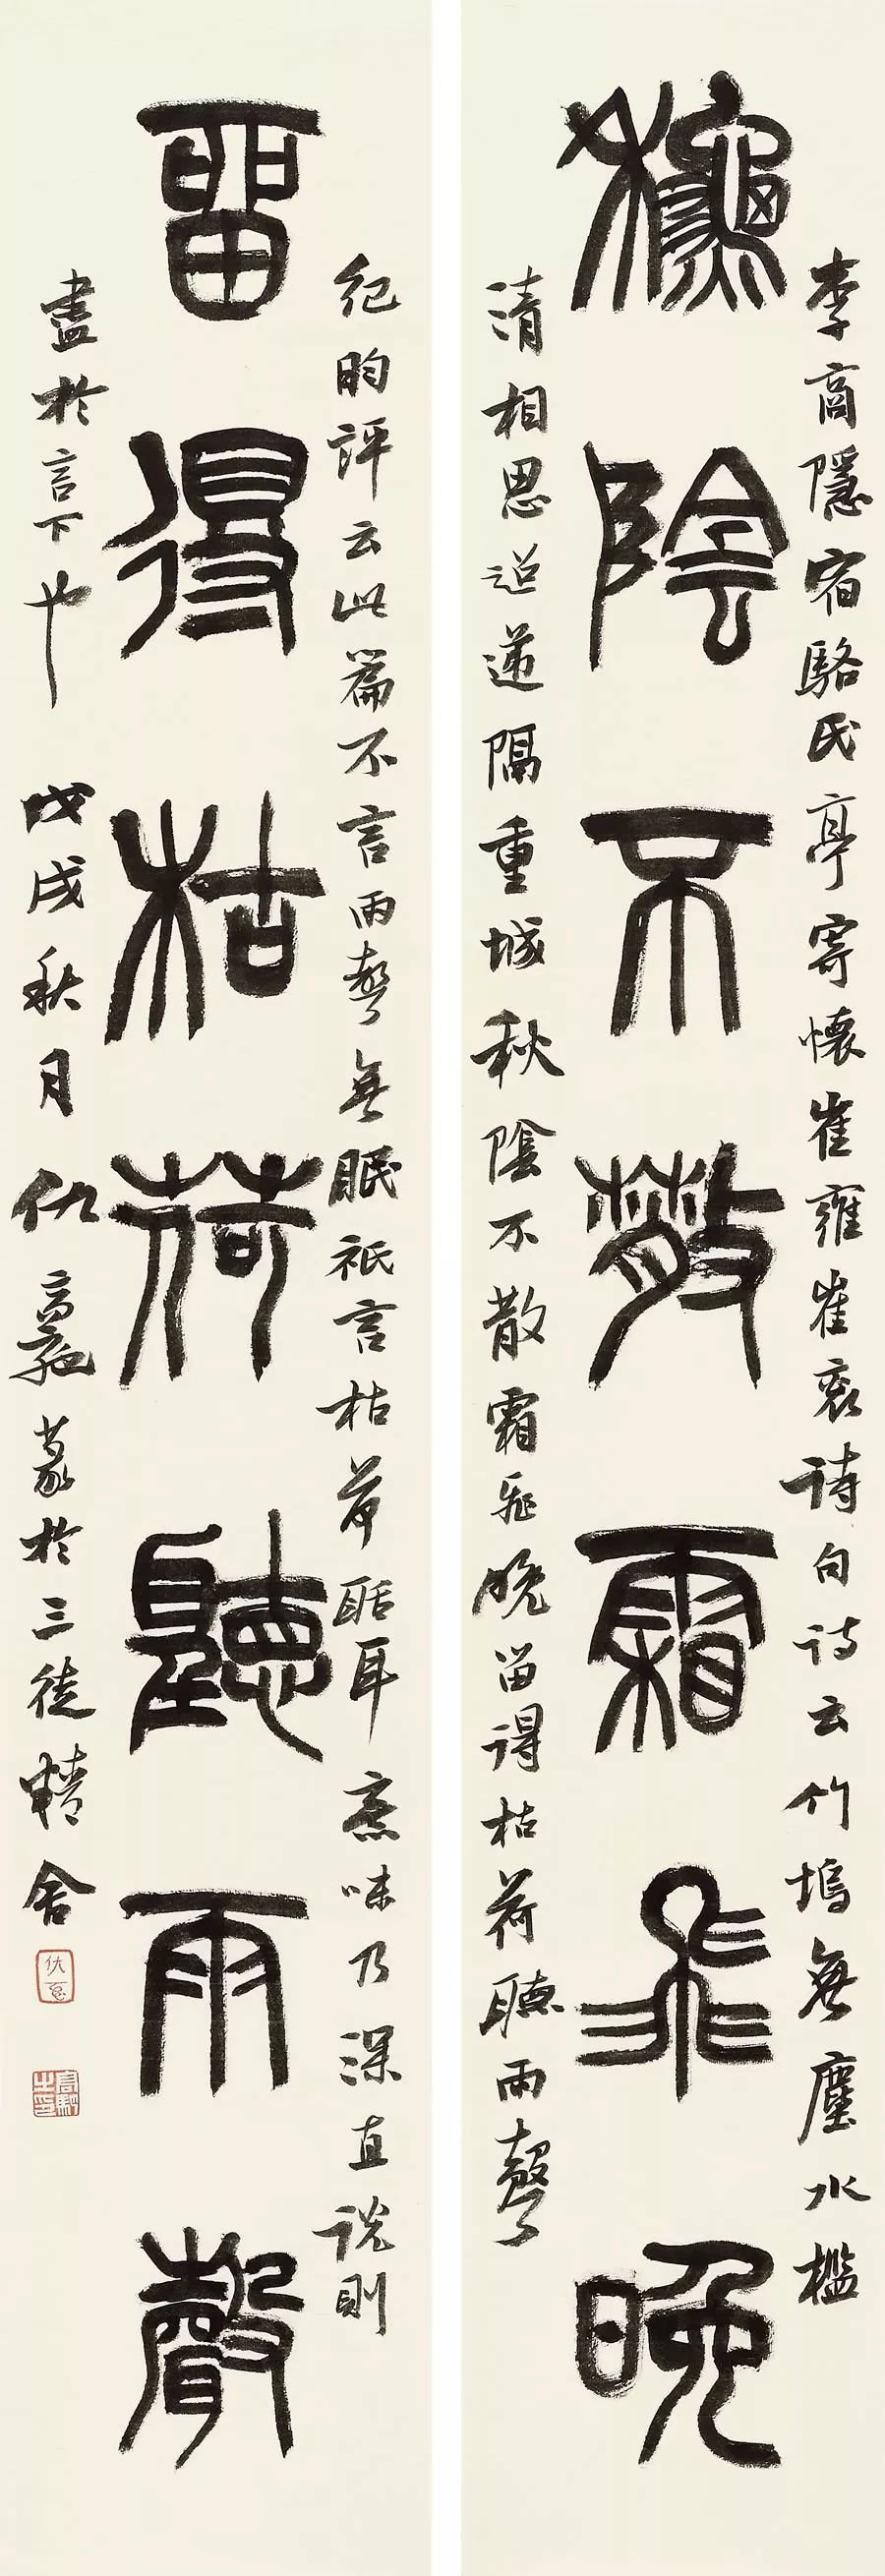 李商隱宿駱氏亭寄懷崔雍崔衮詩句詩云竹塢無塵水檻
龝陰不散霜飛晚
清相思迢遞隔重城秋陰不散霜飛晚留得枯荷聽雨聲
紀昀評云此篇不言雨聲無眠祇言枯荷聒耳意味乃深直說則
留得枯荷聽雨聲
盡於言下也 戊戌秋月仇高馳篆於三徒精舍
高馳之印